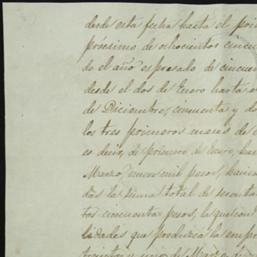 desde esta fecha hasta el pri
próximo de ochocientos cincu
do el año espresado de cincuen
desde el dos de Enero hasta
de Diciembre, cincuenta y do
los tres primeros meses de
es decir, de primero de enero, ha
Marzo, nueve mil pesos, hacien
dos la suma total de
tos cincuenta pesos, la cual cont
lidades que produzca la comp
treinta y uno de Marzo de